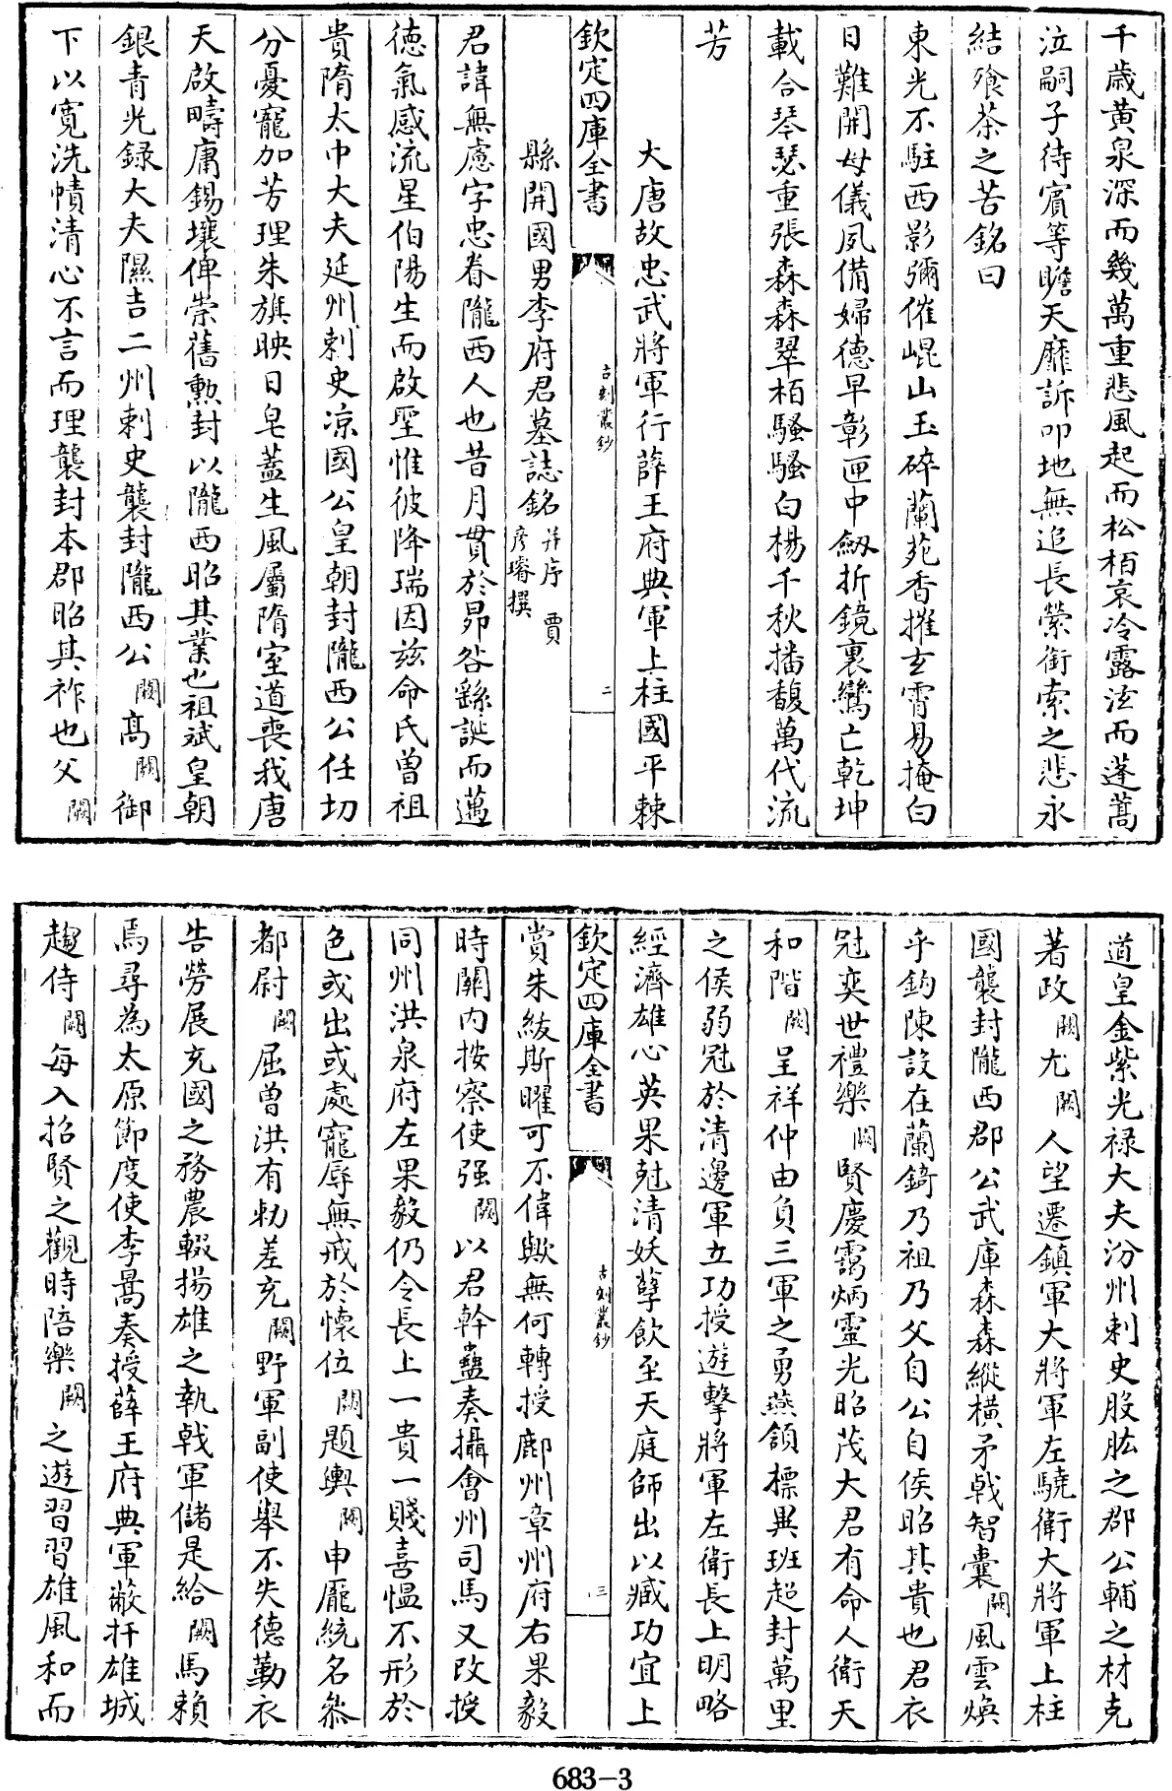 千歳黄泉深而幾萬重悲風起而松栢哀冷露泫而蓬蒿
泣嗣子待賔等瞻天靡訴叩地無追長縈銜索之悲永
結飱荼之苦銘曰
東光不駐西影彌催崐山玉碎蘭苑香摧玄霄易掩白
日難開母儀夙備婦德早彰匣中劔折鏡裏鸞亡乾坤
載合琴瑟重張森森翠栢騷騷白楊千秋播馥萬代流
芳
大唐故忠武將軍行薛王府典軍上柱國平棘
欽定四庫全書
古刻叢鈔
二
縣開國男李府君墓誌銘并序 賈彦璿撰
君諱無慮字忠眷隴西人也昔月貫於昴咎繇誕而邁
德氣感流星伯陽生而啟聖惟彼降瑞因兹命氏曾祖
貴隋太中大夫延州刺史凉國公皇朝封隴西公任切
分憂寵加芳理朱旗映日皂蓋生風屬隋室道喪我唐
天啟疇庸錫壤俾崇舊勲封以隴西昭其業也祖斌皇朝
銀青光録大夫隰吉二州刺史襲封隴西公闕高闕御
下以寛洗幘清心不言而理襲封本郡昭其祚也父闕
道皇金紫光禄大夫汾州刺史股肱之郡公輔之材克
著政闕尤闕人望遷鎮軍大將軍左驍衛大將軍上柱
國襲封隴西郡公武庫森森縱橫矛戟智囊闕風雲煥
乎鈎陳設在蘭錡乃祖乃父自公自侯昭其貴也君衣
冠奕世禮樂闕賢慶靄炳靈光昭茂大君有命人衛天
和階闕呈祥仲由負三軍之勇燕頷標異班超封萬里
之侯弱冠於清邊軍立功授遊擊將軍左衛長上明略
經濟雄心英果尅清妖孽飲至天庭師出以臧功宜上
欽定四庫全書
古刻叢鈔
三
賞朱紱斯曜可不偉歟無何轉授鄜州章州府右果毅
時關内按察使强闕以君幹蠱奏攝會州司馬又改授
同州洪泉府左果毅仍令長上一貴一賤喜愠不形於
色或出或處寵辱無戒於懷位闕題輿闕申龎統名叅
都尉闕屈曽洪有勅差充闕野軍副使舉不失德勤衣
告勞展充國之務農輟揚雄之執戟軍儲是給闕馬賴
焉尋為太原節度使李暠奏授薛王府典軍蔽扞雄城
趨侍闕每入招賢之觀時陪樂闕之遊習習雄風和而
683-3